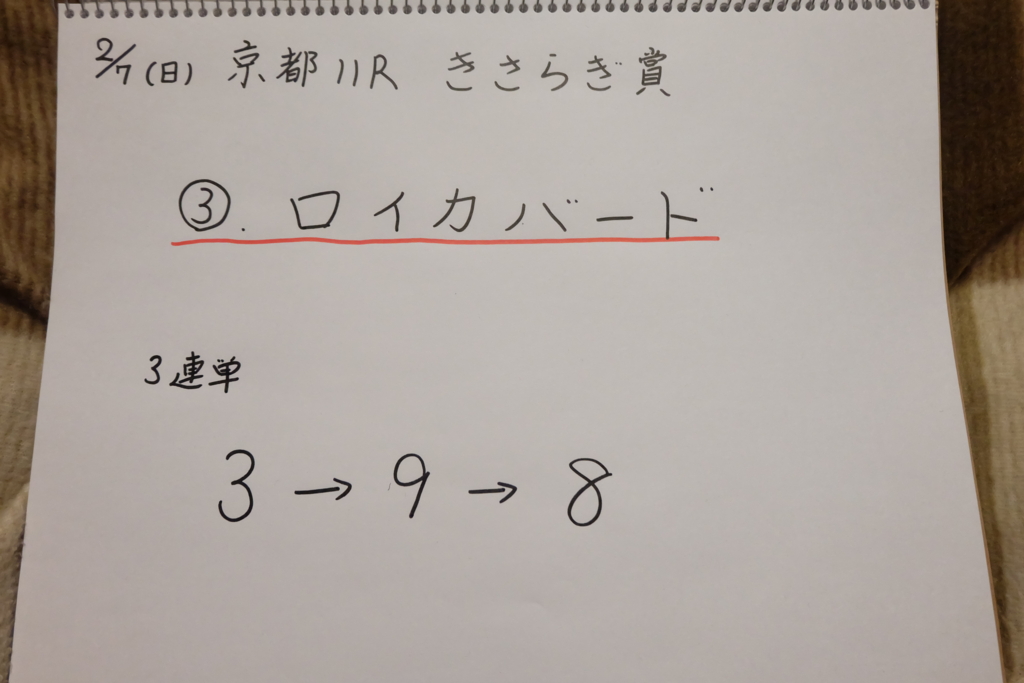 2/7(日) 京都11R きさらぎ賞
③. ロイカバード
3連単
3→9→8